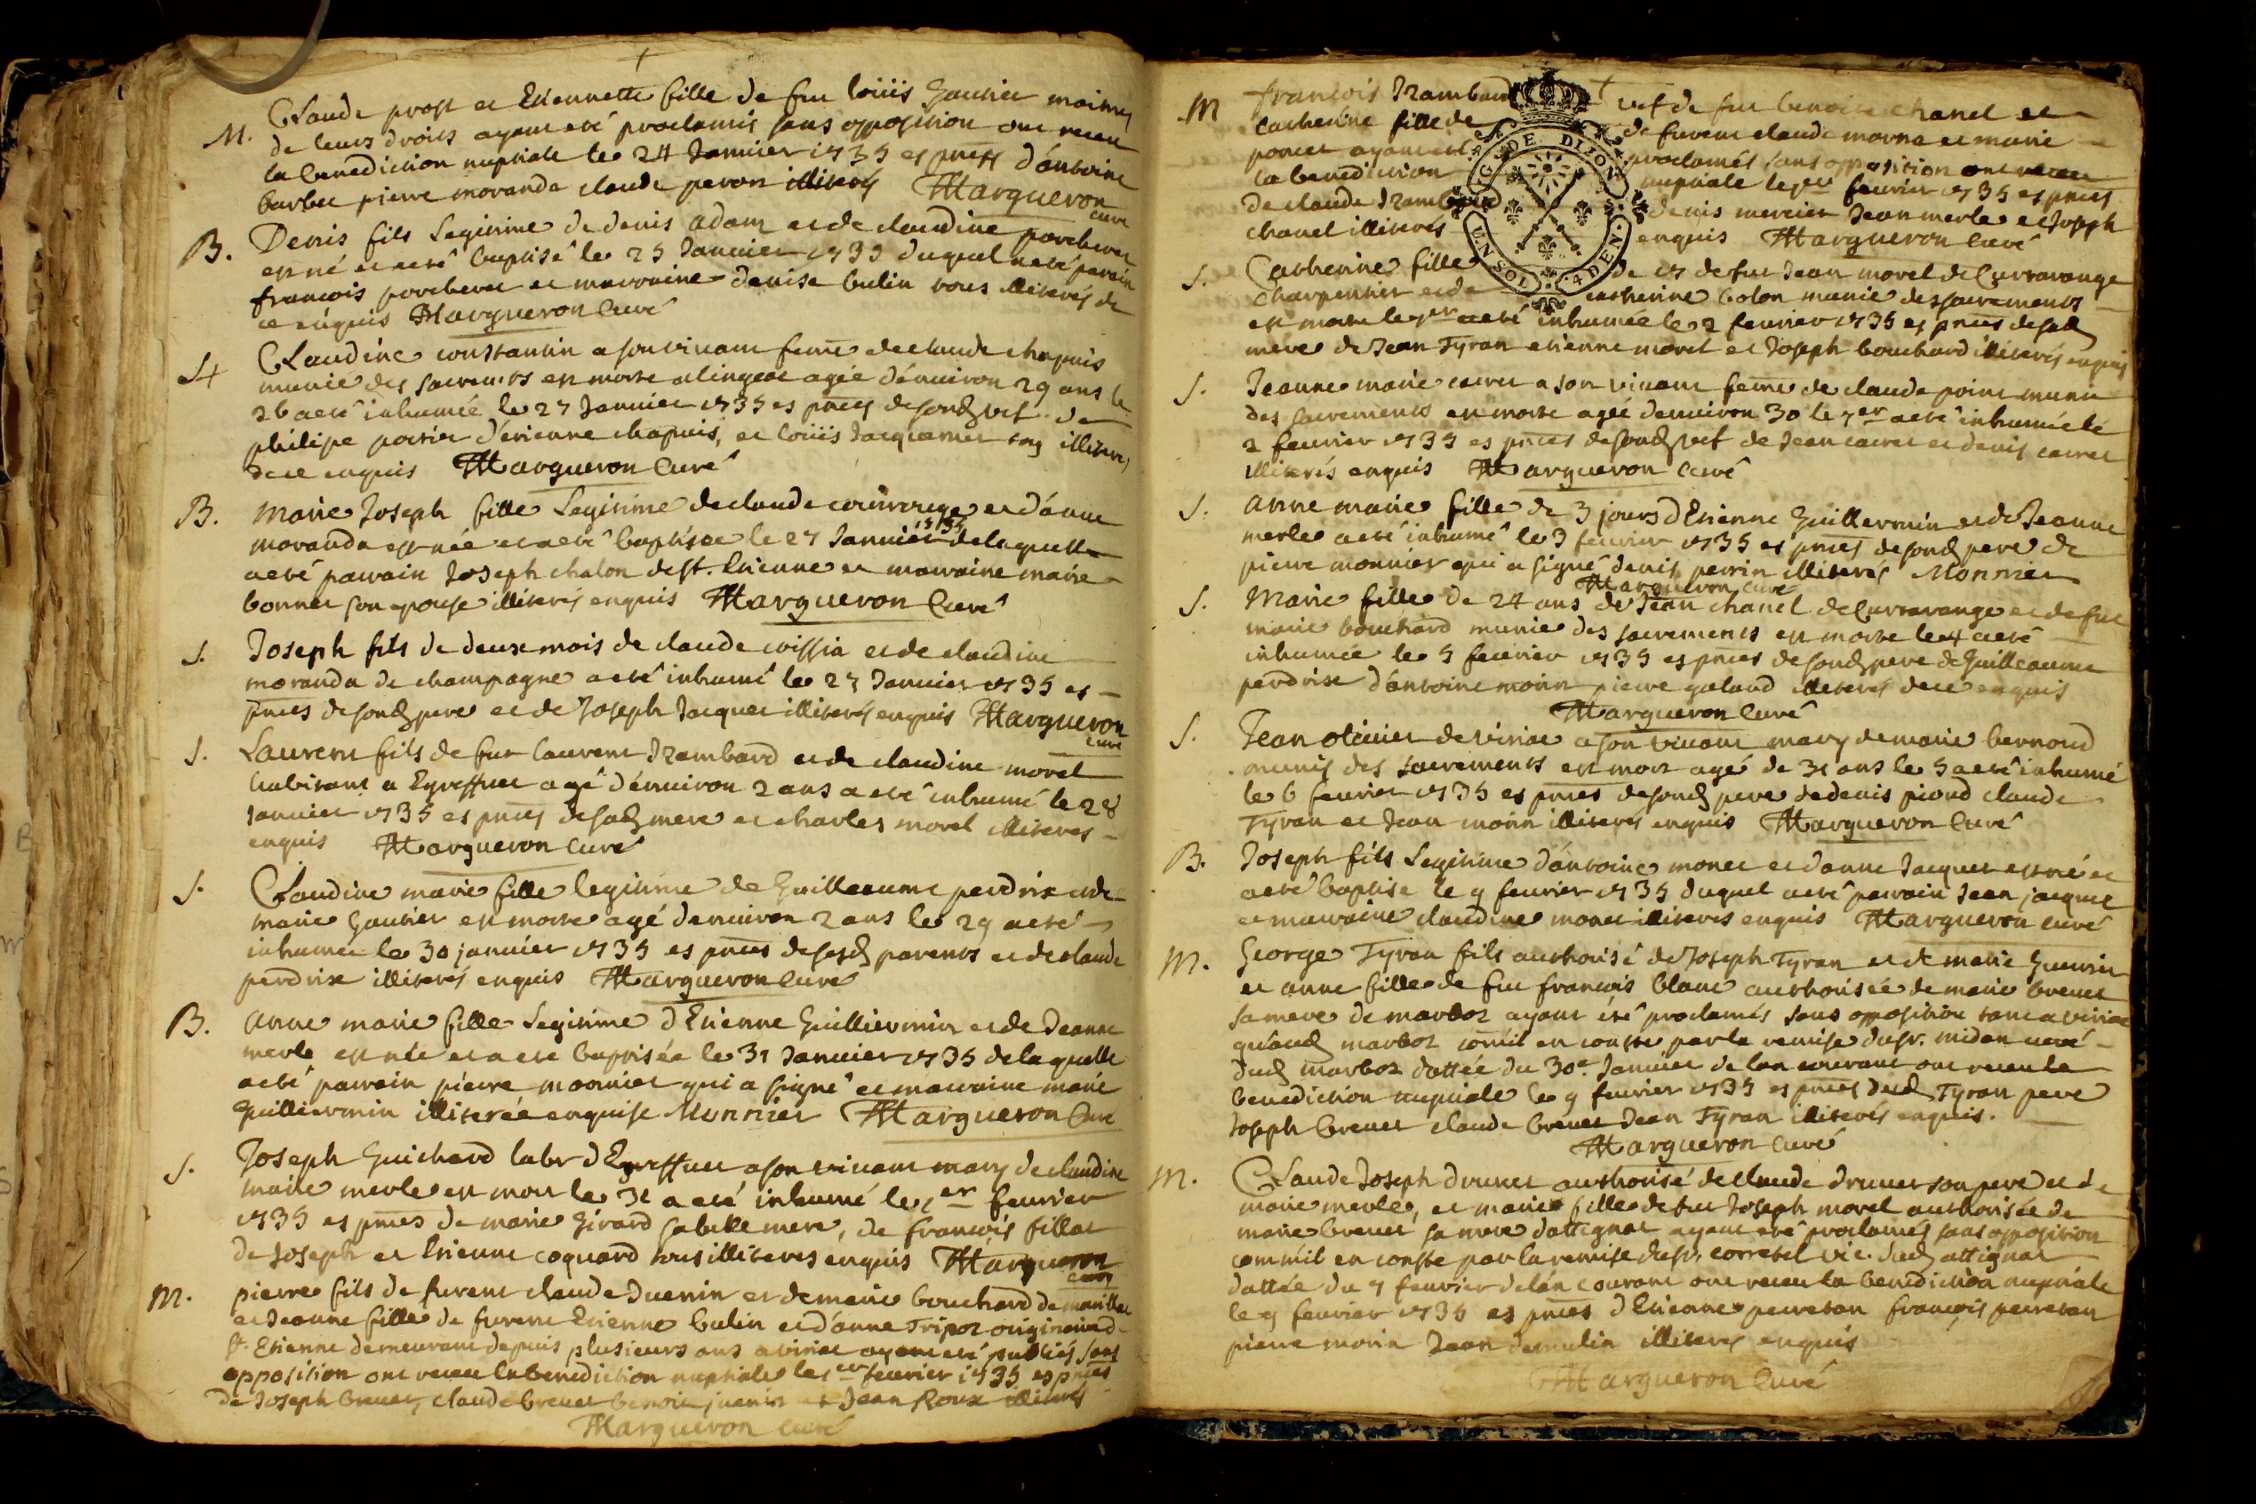 M. Claude prost et Etiennette fille de feu loüis Gautier maitres
de leurs droits ayant eté proclamés sans opposition ont receu
la benediction nuptiale le 24 Janvier 1735 es pnces d'antoine
barbet pierre moranda claude peron illiterés Margueron
curé
B. Denis fils legitime de denis adam et de claudine porcheret
est né et a eté baptisé le 25 Janvier 1735 duquel a eté parain
francois porcheret et marraine denise bulin tous illiterés de
ce enquis Margueron Curé
S+ Claudine constantin a son vivant feme de claude chapuis
munie des sacremts est morte a lingeat agée d'environ 29 ans le
26 a eté inhumée le 27 Janvier 1735 es pnces de sond de
philipe poirier d'etienne chapuis, et loüis Jacquemet illiterés
de ce enquis Margueron Curé
B. Marie Joseph fille Legitime de claude et d'anne
moranda est née et a eté baptisée le 27 Janvier 1735 de laquelle
a eté parrain Joseph chalon de st. Etienne et marraine marie
bonnet son epouse illiterés enquis Margueron Curé
S. Joseph fils de deux mois de claude et de claudine
moranda de champagne a eté inhumé le 27 Janvier 1735 es
pnces de sond pere et de Joseph Jacquet illiterés enquis Margueron
curé
S. Laurent fils de feu laurent Trambard et de claudine morel
habitant a Eyreffuet agé d'environ 2 ans a eté inhumé le 28
Janvier 1735 es pnces de sad mere et charles morel illiterés
enquis Margueron Curé
S. Claudine marie fille legitime de Guilleaume perdrix et de
marie Gautier est morte agé d'environ 2 ans le 29 a eté
inhumée le 30 janvier 1735 es pnces de sesd parents et de claude
perdrix illiterés enquis Margueron Curé
B. Anne marie fille Legitime d'Etienne Guilliermin et de Jeanne
merle est née et a eté baptisée le 31 Janvier 1735 de laquelle
a eté parrain pierre monnier qui a signé et marraine marie
Guilliermin illiterée enquise Monnier Margueron Curé
S. Joseph Guichard labr d'Eyreffuet a son vivant mary de claudine
marie merle est mort le 31 a eté inhumé le 1er fevrier
1735 es pnces de marie Girard sa belle mere, de françois fillat
de Joseph et Etienne coquard tous illiterés enquis Margueron
curé
M. pierre fils de furent claude Duenin et de marie bouchard de
et Jeanne fille de furent Etienne bulin et d'anne Tripoz originaire de
st. Etienne demeurant depuis plusieurs ans a viriat ayant eté publiés sans
opposition ont receu la benediction nuptiale le 1er fevrier 1735 es pnces
de Joseph brevet, claude brevet benoit juenin et Jean Roux illiterés
Margueron curé
M françois Trambard vef de feu benoite chanel et
Catherine fille de de furent claude morna et marie
poncet ayant eté proclamés sans opposition ont receu
la benediction nuptiale le 1er fevrier 1735 es pnces
de claude Trambard denis mercier Jean merle et Joseph
chanel illiterés enquis Margueron Curé
GE. DE DIJON
UN SOL 4 DEN.
S. Catherine fille de 17 de feu Jean morel de Curtarange
charpentier et de catherine bolon munie des sacrements
est morte le 1er a eté inhumée le 2 fevrier 1735 es pnces de sad
mere de Jean Tyran etienne morel et Joseph bouchard illiterés enquis
S. Jeanne marie carret a son vivant feme de claude point munie
des sacrements est morte agée d'environ 30 le 1er a eté inhumée le
2 fevrier 1735 es pnces de sond vef de Jean carret et denis carret
illiterés enquis Margueron Curé
S. Anne marie fille de 3 jours d'Etienne Guillermin et de Jeanne
merle a eté inhumé le 3 fevrier 1735 es pnces de sond pere de
pierre monnier qui a signé denis perrin illiterés Monnier
Margueron curé
S. Marie fille de 24 ans de Jean chanel de Curtarange et de feue
marie bouchard munie des sacrements est morte le 4 a eté
inhumée le 5 fevrier 1735 es pnces de sond pere de Guilleaume
perdrix d'antoine morin pierre galand illiterés de ce enquis
Margueron Curé
S. Jean olivier de viriat a son vivant mary de marie bernoud
munis des sacrements est mort agé de 31 ans le 5 a eté inhumé
le 6 fevrier 1735 es pnces de sond pere de denis pioud claude
Tyran et Jean morin illiterés enquis Margueron Curé
B. Joseph fils Legitime d'antoine monet et d'anne Jacquet est né et
a eté baptisé le 9 fevrier 1735 duquel a eté parrain Jean jacquet
et marraine claudine monet illiterés enquis Margueron curé
M. George Tyran fils authorisé de Joseph Tyran et de marie Guerin
et anne fille de feu françois blanc authorisée de marie brevet
sa mere de marboz ayant été proclamés sans opposition tant a viriat
qu'aud marboz come il en conste par la remise du sr. midan curé
dud marboz dattée du 30e. Janvier de l'an courant ont receu la
benediction nuptiale le 9 fevrier 1735 es pnces dud Tyran pere
Joseph brevet claude brevet Jean Tyran illiterés enquis.
Margueron Curé
M. Claude Joseph druvet authorisé de claude druvet son pere et de
marie merle, et marie fille de feu Joseph morel authorisée de
marie brevet sa mere d'attignat ayant eté proclamés sans opposition
comm'il en conste par la remise du sr. corretel vic. dud attignat
dattée du 7 fevrier de l'an courant ont receu la benediction nuptiale
le 9 fevrier 1735 es pnces d'Etienne perretan françois perretan
pierre morin Jean illiterés enquis
Margueron Curé